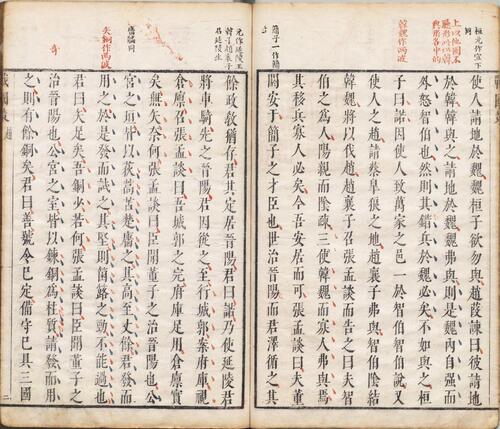 桓元作宣下
同
韓魏作兩波
簡子一作簡
主
使人請地於魏魏桓子欲勿與趙葭諫曰彼請地
於韓韓與之請地於魏魏弗與則是魏內自强而
外怒智伯也然則其錯兵於魏必矣不如與之桓
子曰諾因使人致萬家之邑一於智伯智伯說又
使人之趙請蔡皐狼之地趙襄子弗與智伯陰結
韓魏將以伐趙趙襄子召張孟談而告之曰夫智
伯之爲人陽親而陰疏三使韓魏而寡人弗與焉
其移兵寡人必矣今吾安居而可張孟談曰夫董
閼安于簡子之才臣也世治晉陽而尹澤循之其
元作延陵王
韓子趙襄子
召延陵生
廧牆同
矢銅作兩波
奇
餘政敎猶存君其定居晉陽君曰諾乃使延陵君
將車騎先之晉陽君因從之至行城郭案府庫視
倉廩召張孟談曰吾城郭之完府庫足用倉廩實
矣無矢奈何張孟談曰臣聞董子之治晉陽也公
宮之垣皆以荻蒿苫楚廧之其高至丈餘君發而
用之於是發而試之其堅則箘簬之勁不能過也
君曰矢足矣吾銅少若何張孟談曰臣聞董子之
治晉陽也公宮之室皆以鍊銅爲柱質請發而用
之則有餘銅矣君曰善號令已定備守已具三國
二